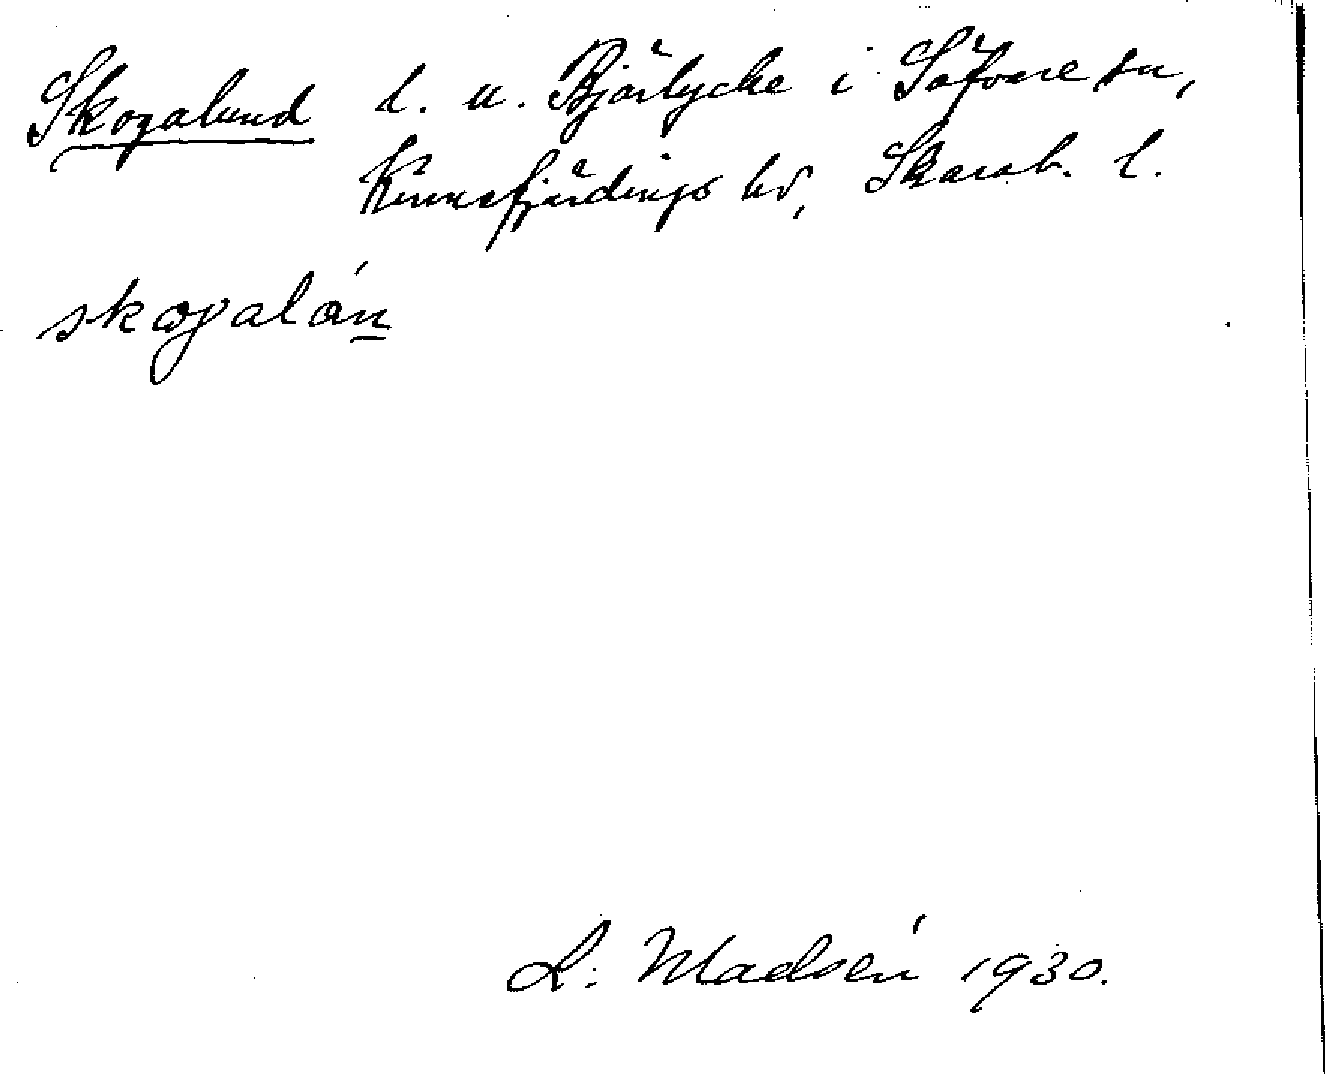 Skogalund l. u. Bjärlycke i Såfvare sn,
Kinnefjärdings hd, Skarab. l.
skogalán
L: Madsén 1930.